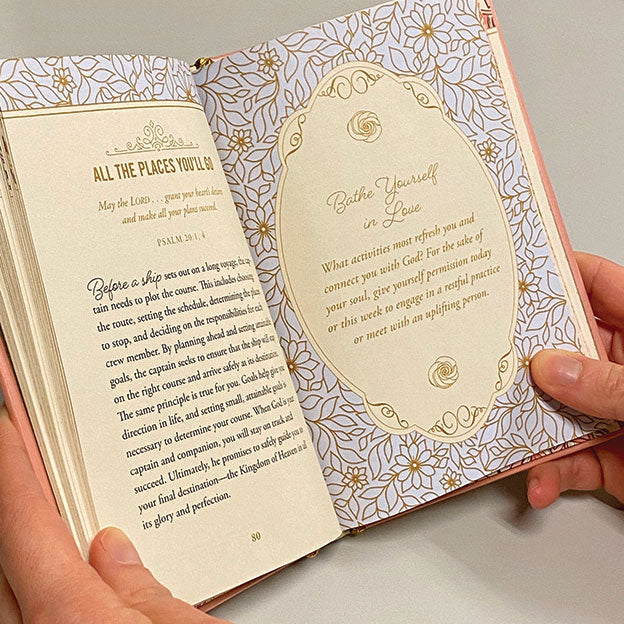 ALL THE PLACES YOU'LL GO
May the LORD . . . grant your heart's desires
and make all your plans succeed.
PSALM 20:1, 4
Before a ship sets out on a long voyage, the cap-
tain needs to plot the course. This includes choosing
the route, setting the schedule, determining the places
to stop, and deciding on the responsibilities for each
crew member. By planning ahead and setting attainable
goals, the captain seeks to ensure that the ship will stay
on the right course and arrive safely at its destination.
The same principle is true for you. Goals help give you
direction in life, and setting small, attainable goals is
necessary to determine your course. When God is your
captain and companion, you will stay on track and
succeed. Ultimately, he promises to safely guide you to
your final destination—the Kingdom of Heaven in all
its glory and perfection.
80
Bathe Yourself
in Love
What activities most refresh you and
connect you with God? For the sake of
your soul, give yourself permission today
or this week to engage in a restful practice
or meet with an uplifting person.